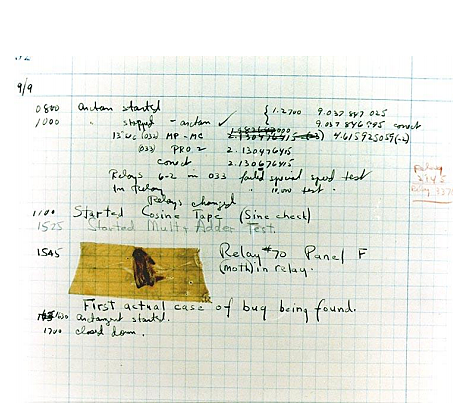 9/9
0800 Antan started { 1.2700 9.037 847 025
1000 " stopped - antan ✓ 9.037 846 995 conect
13"uc (032) MP - MC 2.130476415 (-3) 4.615925059(-2)
(033) PRO 2 2.130476415
conect 2.130676415
Relays 6-2 in 033 failed special speed test
In Relay " 10,000 test.
Relay 2145
Relay 3370
Relays changed
1100 Started Cosine Tape (Sine check)
1525 Started Mult+Adder Test.
1545 Relay #70 Panel F
(moth) in relay.
First actual case of bug being found.
1630 antangent started.
1700 closed down.